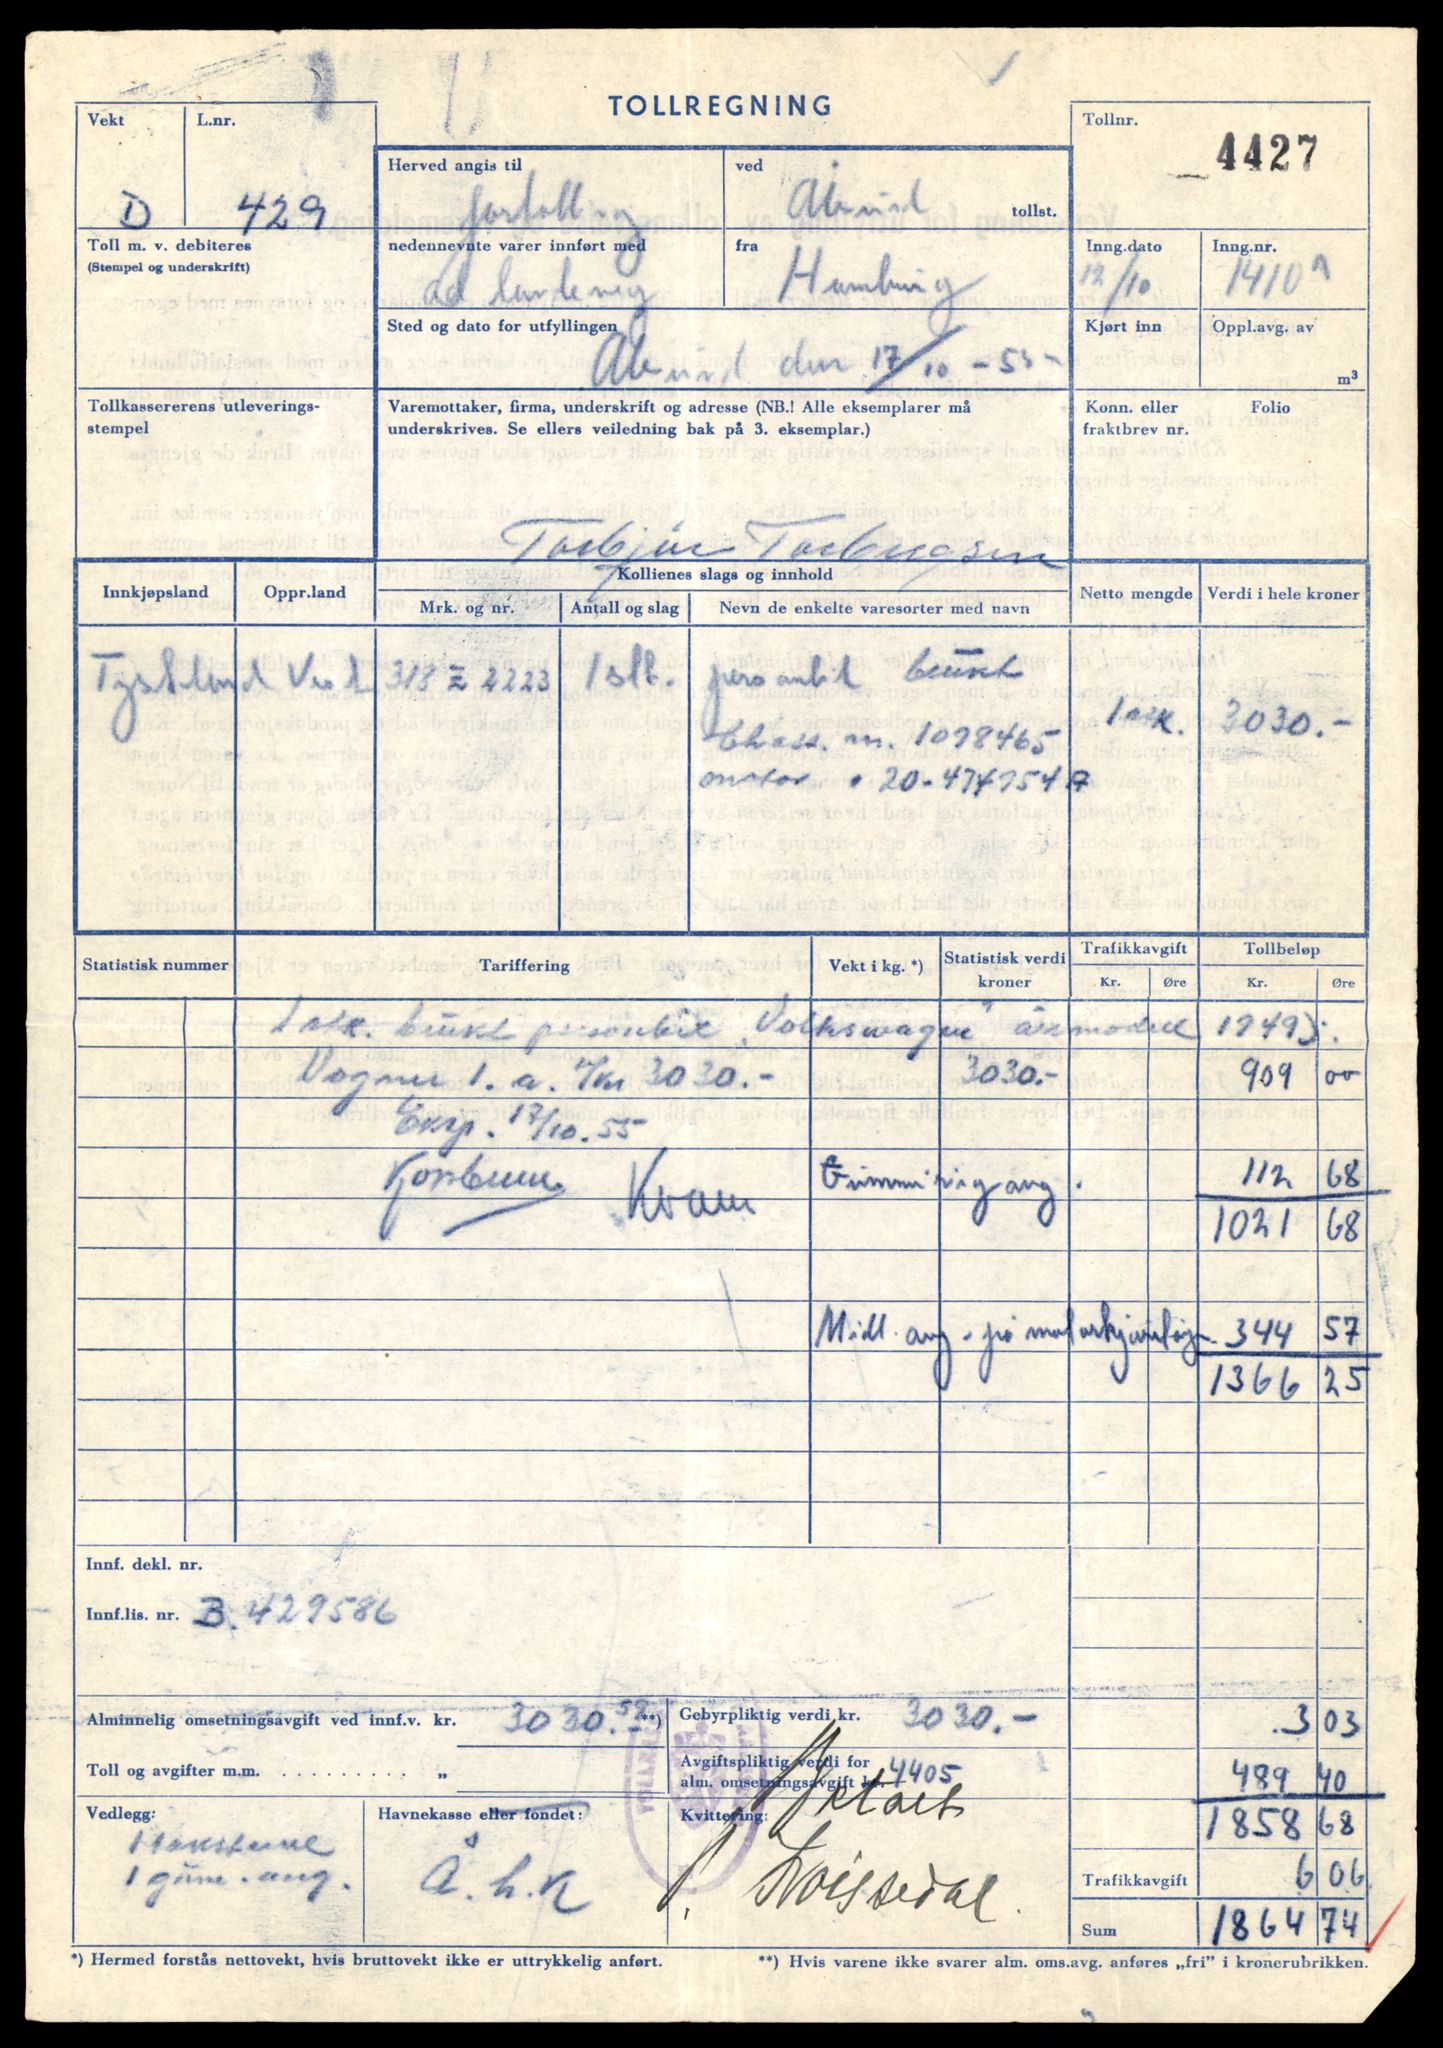 TOLLREGNING
Vekt
D
L.nr.
429
Herved angis til
fortolling
ved
Ålesund
tollst.
Tollnr.
4427
Toll m. v. debiteres
(Stempel og underskrift)
nedennevnte varer innført med
landeveg
fra
Hamburg
Inng.dato
12/10
Inng.nr.
1410
Sted og dato for utfyllingen
den 17/10 - 55
Kjørt inn
Oppl.avg. av
m³
Tollkassererens utleverings-
stempel
Varemottaker, firma, underskrift og adresse (NB.! Alle eksemplarer må
underskrives. Se ellers veiledning bak på 3. eksemplar.)
Konn. eller
fraktbrev nr.
Folio
Torbjørn Torbergsen
Kollienes slags og innhold
Innkjøpsland
Oppr.land
Mrk. og nr.
Antall og slag
Nevn de enkelte varesorter med navn
Netto mengde
Verdi i hele kroner
Tyskland Vest 313 Z 2223 1 stk. personbil brukt
1 stk. 3030.-
Chass. nr. 1098465
motor " 20-4747549
Statistisk nummer
Tariffering
Vekt i kg. *)
Statistisk verdi
kroner
Trafikkavgift
Kr. Øre
Tollbeløp
Kr. Øre
1 stk. brukt personbil "Volkswagen" årsmodell 1949
Vogner 1. a. 3030.- 3030.- 909 00
Eksp. 17/10.55
Kvam
Gummiavg. 112 68
1021 68
Midl. avg. på motorkjøretøy. 344 57
1366 25
Innf. dekl. nr.
Innf.lis. nr. B. 429586
Alminnelig omsetningsavgift ved innf.v. kr. 3030.- **)
Gebyrpliktig verdi kr. 3030.-
3 03
Toll og avgifter m.m. . . . . . . . . . „
Avgiftspliktig verdi for
alm. omsetningsavgift kr. 4405
489 40
Vedlegg:
1 gum. avg.
Havnekasse eller fondet:
Å.h.k
Kvittering:
1858 68
Trafikkavgift 6 06
Sum 1864 74
*) Hermed forstås nettovekt, hvis bruttovekt ikke er uttrykkelig anført.
**) Hvis varene ikke svarer alm. oms.avg. anføres „fri” i kronerubrikken.